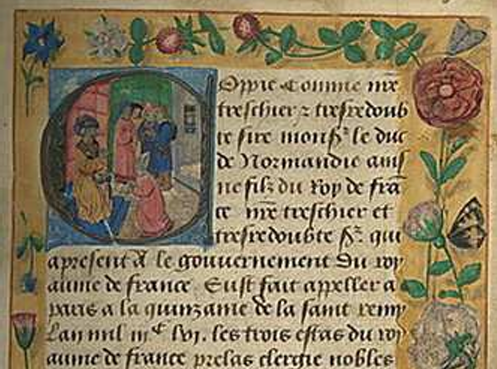 Oppie Comme nre
treschier z tresredoub
te sire monsr le duc
de Normandie ains
ne filz du Roy de fra
ce nre treschier et
tresredoubte sr qui
apresent a le gouvernement du roy
aume de france. Eust fait appeller a
paris a la quinzaine de la saint remy
Lan mil iiic lvi. les trois estas du roy
aume de france prelas clergie nobles